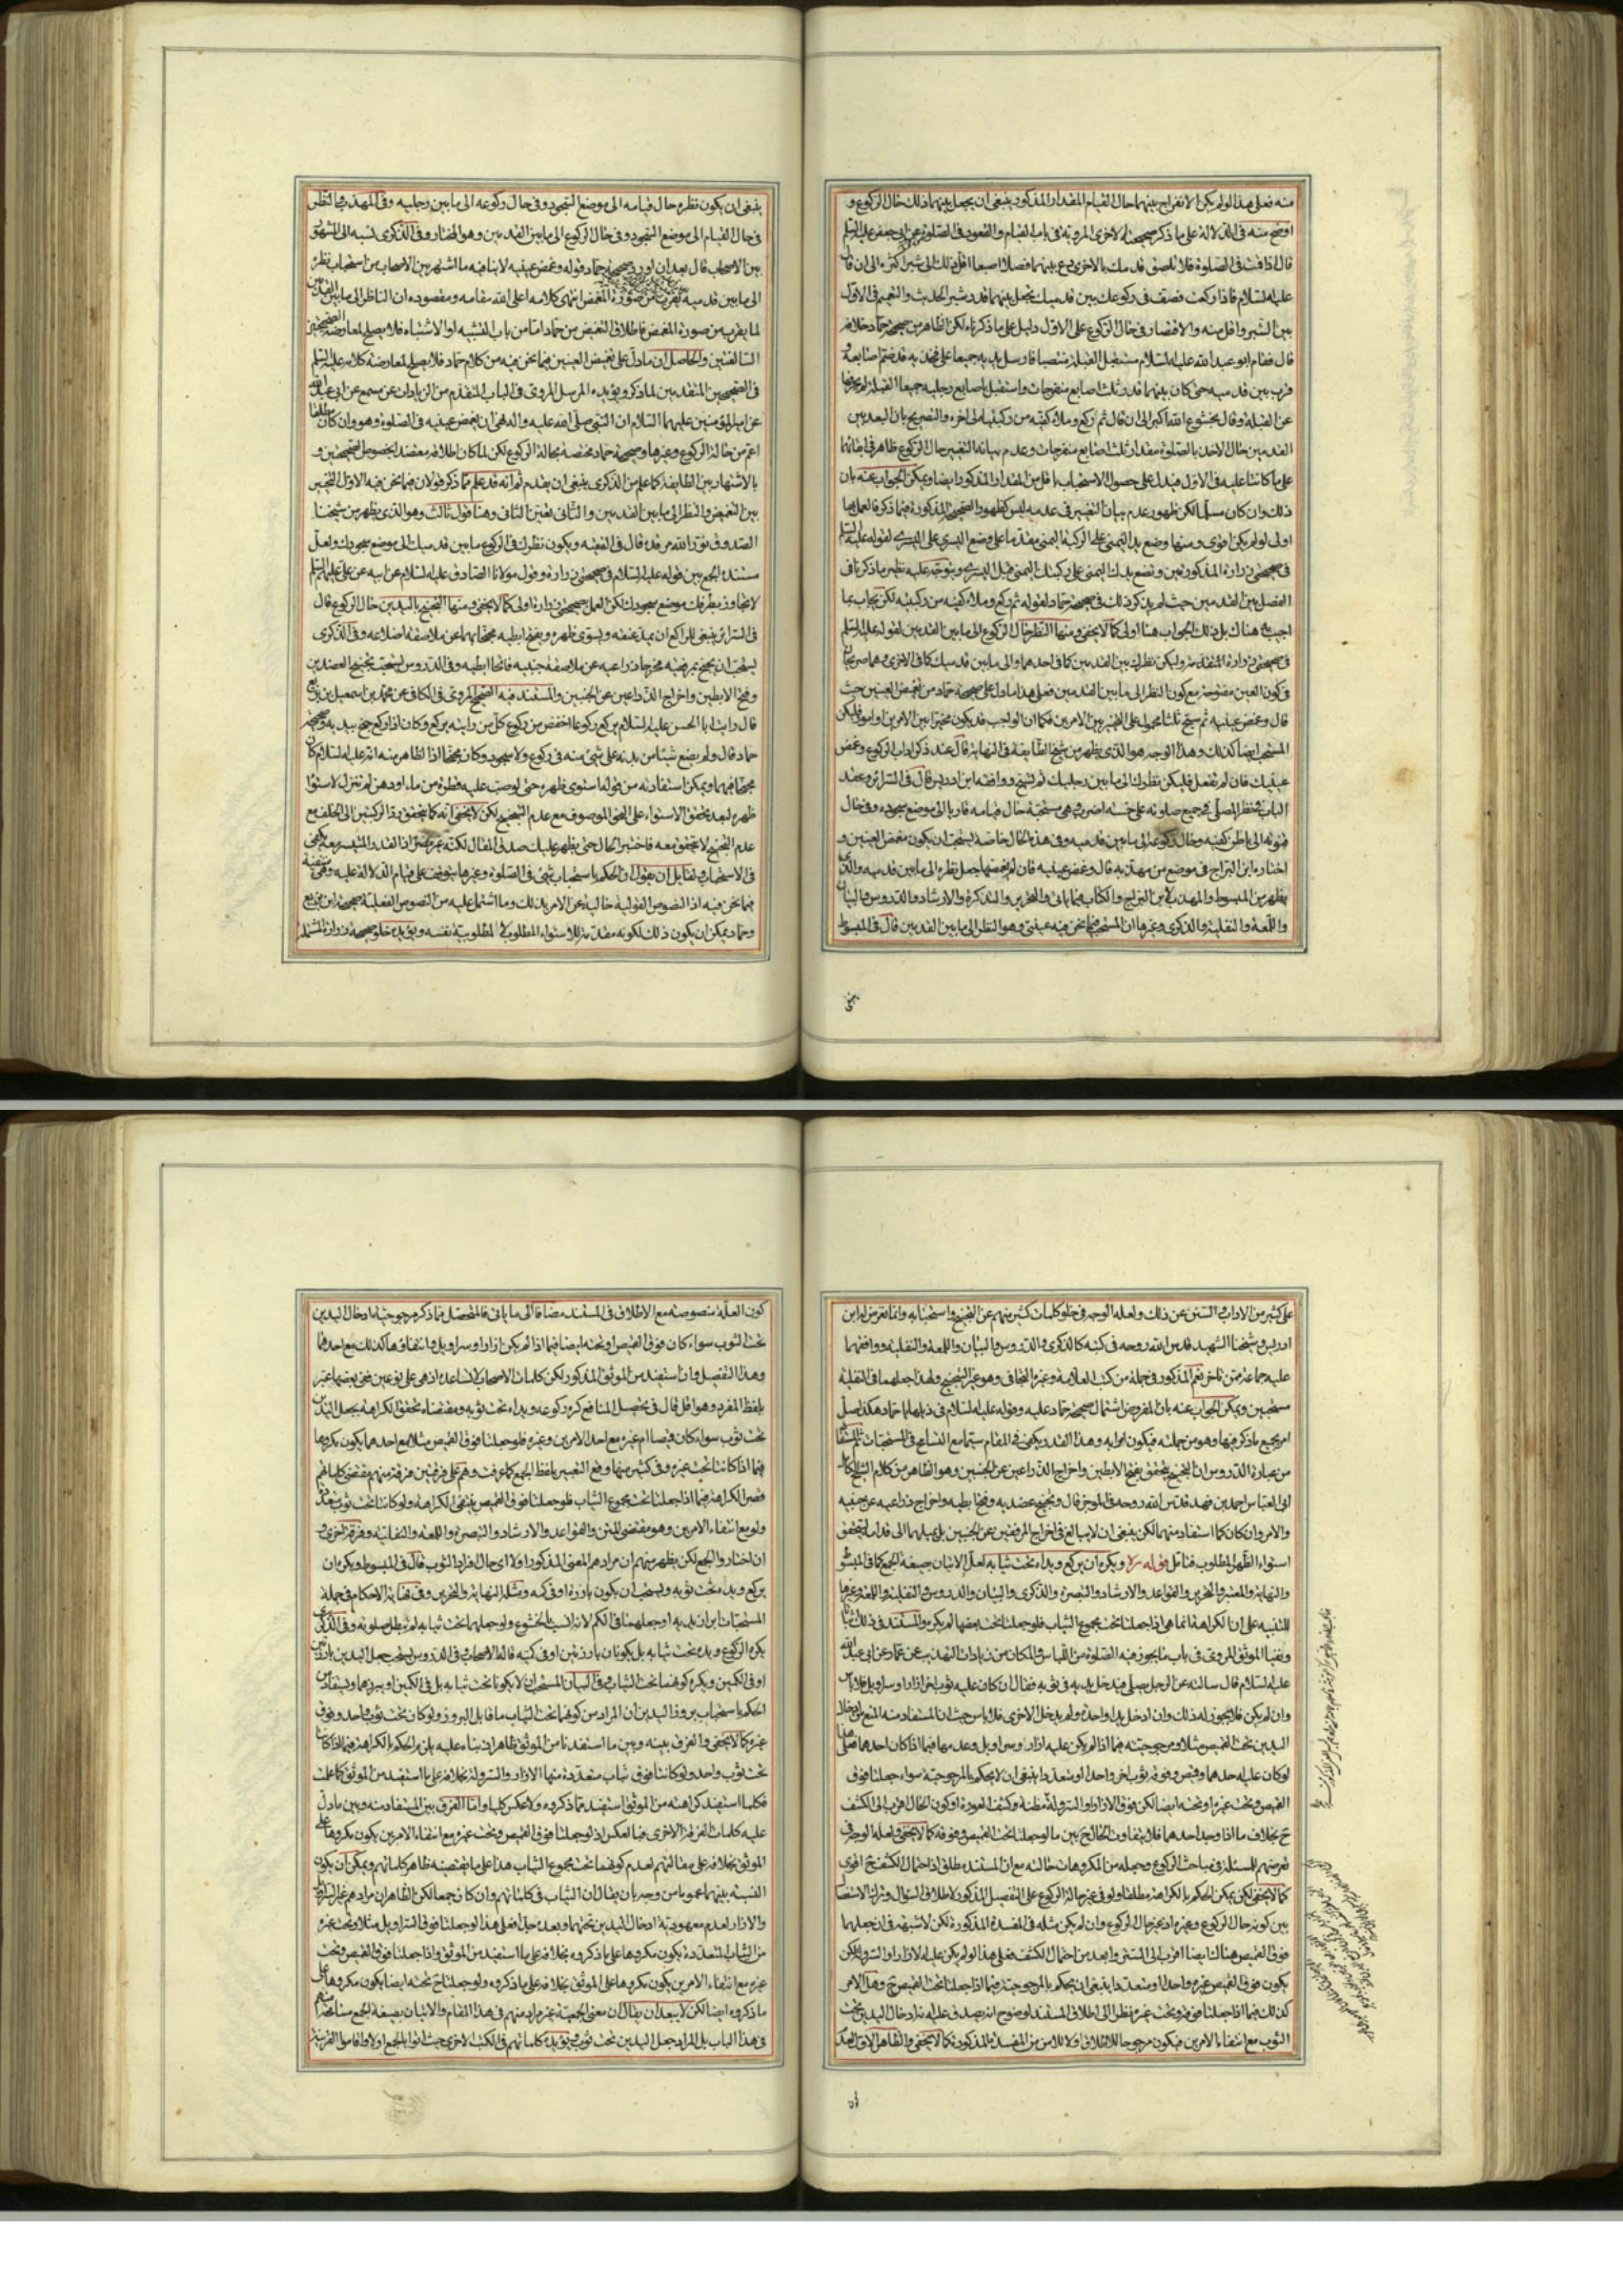 منه فعلى هذا لو لم يكن الانفراج بينهما حال القيام المقدار المذكور ينبغي ان يجعل بينهما ذلك حال الركوع و
اوضح منه في الدلالة على ما ذكر صحيحته الاخرى المروية في باب القيام والقعود في الصلوة عن ابي جعفر عليه السلم
قال اذا قمت في الصلوة فلا تلصق قدمك بالاخرى دع بينهما فصلا اصبعا اقل ذلك الى شبر اكثره الى ان قال
عليه السلام فاذا ركعت فصف في ركوعك بين قدميك تجعل بينهما قدر شبر الحديث والتعميم في الاول
بين الشبر واقل منه والاقتصار في حال الركوع على الاول دليل على ما ذكرناه لكن الظاهر من صحيحة حماد خلافه
قال فقام ابو عبد الله عليه السلام مستقبل القبلة منتصبا فارسل يديه جميعا على فخذيه قد ضم اصابعه و
قرب بين قدميه حتى كان بينهما قدر ثلث اصابع منفرجات واستقبل باصابع رجليه جميعا القبلة لم يحرفهما
عن القبلة وقال بخشوع الله اكبر الى ان قال ثم ركع وملاء كفيه من ركبتيه الى اخره والتصريح بان البعد بين
القدمين حال الاخذ بالصلوة مقدار ثلث اصابع منفرجات وعدم بيانه التغيير حال الركوع ظاهر في ابقائهما
على ما كانتا عليه في الاول فيدل على حصول الاستحباب باقل من المقدار المذكور ايضا ويمكن الجواب عنه بان
ذلك وان كان مسلما لكن ظهور عدم بيان التغيير في عدمه ليس كظهور الصحيح المذكورة فيما ذكر فالعمل بها
اولى لو لم يكن اقوى ومنها وضع يد اليمنى على الركبة اليمنى مقدما على وضع اليسرى على اليسرى لقوله عليه السلم
في صحيحتي زرارة المذكورتين وتضع يدك اليمنى على ركبتك اليمنى قبل اليسرى ويتوجه عليه نظير ما ذكرنا في
الفصل بين القدمين حيث لم يذكر ذلك في صحيحة حماد لقوله ثم ركع وملاء كفيه من ركبتيه لكن يجاب بما
اجيب به هناك بل ذلك الجواب هنا اولى كما لا يخفى ومنها النظر حال الركوع الى ما بين القدمين لقوله عليه السلم
في صحيحتي زرارة المتقدمة وليكن نظرك بين القدمين كما في احدهما والى ما بين قدميك كما في الاخرى وهما صريحتان
في كون العين مفتوحة مع كون النظر الى ما بين القدمين فعلى هذا ما دل على صحيحة حماد من تغميض العينين حيث
قال وغمض عينيه ثم سبح ثلثا محمول على التخيير بين الامرين فكما ان الواجب قد يكون مخيرا بين الامرين او امور فليكن
المستحب ايضا كذلك وهذا الوجه هو الذي يظهر من شيخ الطايفة في النهاية قال عند ذكر اداب الركوع وغمض
عينيك فان لم تفعل فليكن نظرك الى ما بين رجليك ثم تسبح ووافقه ابن ادريس قال في السرائر وعقد
الباب في نظر المصلي في جميع صلوته على خمسة اضرب وهي مستحبة حال قيامه فاربا الى موضع سجوده وفي حال
قنوته الى باطن كفيه وحال ركوعه الى ما بين قدميه وفي هذه الحال خاصة يستحب ان يكون مغمض العينين و
اختاره ابن البراج في موضع من مهذبه قال وغمض عينيه فان لم يغمضهما جعل نظره الى ما بين قدميه والذي
يظهر من المبسوط والمهذب لابن البراج والكتاب فيما ياتي والتحرير والتذكرة والارشاد والدروس والبيان
واللمعة والنقلية والذكرى وغيرها ان المستحب فيما نحن فيه عيني وهو النظر الى ما بين القدمين قال في المبسوط
ينبغي ان يكون نظره حال قيامه الى موضع السجود وفي حال ركوعه الى ما بين رجليه وفي المهذب فيها النظر
في حال القيام الى موضع السجود وفي حال الركوع الى ما بين القدمين وهو المختار وفي الذكرى نسبه الى الشهرة
بين الاصحاب قال بعد ان اورد صحيحة حماد قوله وغمض عينيه لا ينافيه ما اشتهر بين الاصحاب من استحباب نظره
الى ما بين قدميه يقرب من صورة المغمض انتهى كلامه اعلى الله مقامه ومقصوده ان الناظر الى ما بين القدمين
لما يقرب من صورة المغمض فاطلاق التغميض من حماد اما من باب التشبيه او الاشتباه فلا يصلح لمعارضة الصحيحين
السالفتين والحاصل ان ما دل على تغميض العينين فيما نحن فيه من كلام حماد فلا يصلح لمعارضة كلامه عليه السلم
في الصحيحين المتقدمين لما ذكر ويؤيده المرسل المروي في الباب المتقدم من الزيادات عن مسمع عن ابي عبد الله
عن امير المؤمنين عليهما السلام ان النبي صلى الله عليه واله نهى ان يغمض عينيه في الصلوة وهو وان كان مطلقا
اعم من حالة الركوع وغيرها وصحيحة حماد مختصة بحالة الركوع لكن لما كان اطلاقه معتضد بخصوص الصحيحين و
بالاشتهار بين الطايفة كما علم من الذكرى ينبغي ان يقدم ثم انه قد علم مما ذكر قولان فيما نحن فيه الاول التخيير
بين التغميض والنظر الى ما بين القدمين والثاني تعين الثاني وهنا قول ثالث وهو الذي يظهر من شيخنا
الصدوق نور الله مرقده قال في الفقيه ويكون نظرك في الركوع ما بين قدميك الى موضع سجودك ولعل
مستنده الجمع بين قوله عليه السلام في صحيحتي زرارة وقول مولانا الصادق عليه السلام عن ابيه عن علي عليهم السلم
لا تجاوز بطرفك موضع سجودك لكن العمل بصحيحتي زرارة اولى كما لا يخفى ومنها التجنيح باليدين حال الركوع قال
في السرائر ينبغي للراكع ان يمد عنقه ويسوي ظهره ويفتح ابطيه مجافيا بهما عن ملاصقة اضلاعه وفي الذكرى
يستحب ان يجنح بمرفقيه مخرجا ذراعيه عن ملاصقة جنبيه فاتحا ابطيه وفي الدروس يستحب تجنيح العضدين
وفتح الابطين واخراج الذراعين عن الجنبين والمستند فيه الصحيح المروي في الكافي عن محمد بن اسمعيل بن بزيع
قال رايت ابا الحسن عليه السلام يركع ركوعا اخفض من ركوع كل من رايته يركع وكان اذا ركع جنح بيديه وصحيحة
حماد قال ولم يضع شيئا من بدنه على شيء منه في ركوع ولا سجود وكان مجنحا اذ الظاهر منه انه عليه السلام كان
مجنحا فيهما ويمكن استفادته من قوله استوى ظهره حتى لو صب عليه قطرة من ماء او دهن لم تزل لاستواء
ظهره لبعد تحقق الاستواء على النحو الموصوف مع عدم التجنيح لكن لا يخفى انه كما يتحقق برد الركبتين الى الخلف مع
عدم التجنيح لا يتحقق معه فاختبر الحال حتى يظهر عليك صدق المقال لكنه غير مضر اذ القدر المتيسر معه يكفي
في الاستحباب ولقابل ان يقول ان الحكم باستحباب شيء في الصلوة وغيرها يتوقف على قيام الدلالة عليه وهي منتفية
فيما نحن فيه اذ النصوص القولية خالية عن الامر بذلك وما اشتمل عليه من النصوص الفعلية صحيحة ابن بزيع
وحماد ويمكن ان يكون ذلك لكونه مقدمة للاستواء المطلوب لا لمطلوبية نفسه ويؤيده خلو صحيحة زرارة المشتملة
على كثير من الاداب والسنن عن ذلك ولعله الوجه في خلو كلمات كثير منهم عن التجنيح واستحبابه وانما تعرض له ابن
ادريس وشيخنا الشهيد قدس الله روحه في كتبه كالذكرى والدروس والبيان واللمعة والنقلية ووافقهما
عليه جماعة ممن تاخر نعم المذكور في جملة من كتب العلامة وغيره التجافي وهو غير التجنيح ولهذا جعلهما في النقلية
مستحبين ويمكن الجواب عنه بان المفروض اشتمال صحيحة حماد عليه وقوله عليه السلام في ذيلها يا حماد هكذا صل
امر بجميع ما ذكر فيها وهو من جملته فيكون امرا به وهذا القدر يكفي في المقام سيما مع التسامح في المستحبات ثم المستفاد
من عبارة الدروس ان التجنيح يتحقق بفتح الابطين واخراج الذراعين عن الجنبين وهو الظاهر من كلام الشيخ الكامل
ابي العباس احمد بن فهد قدس الله روحه في الموجز قال وتجنيح عضديه وفتح ابطيه واخراج ذراعيه عن جنبيه
والامر وان كان كما استفاد منهما لكن ينبغي ان لا يبالغ في اخراج المرفقين عن الجنبين بل يميلهما الى قدام ليتحقق
استواء الظهر المطلوب فتامل قوله ره ويكره ان يركع ويداه تحت ثيابه لعل الاتيان بصيغة الجمع كما في المبسوط
والنهاية والمعتبر والتحرير والقواعد والارشاد والتبصرة والذكرى والبيان والدروس والنقلية واللمعة وغيرها
للتنبيه على ان الكراهة انما هي اذا جعلتا تحت مجموع الثياب فلو جعلتا تحت بعضها لم يكره والمستند في ذلك ثبوتا
ونفيا الموثق المروي في باب ما يجوز فيه الصلوة من اللباس والمكان من زيادات التهذيب عن عمار عن ابي عبد الله
عليه السلام قال سالته عن الرجل يصلي فيدخل يديه في ثوبه فقال ان كان عليه ثوب اخر ازار او سراويل فلا باس
وان لم يكن فلا يجوز له ذلك وان ادخل يدا واحدة ولم يدخل الاخرى فلا باس حيث ان المستفاد منه المنع من ادخال
اليدين تحت القميص مثلا ومرجوحيته فيما اذا لم يكن عليه ازار وسراويل وعدمها فيما اذا كان احدهما فعلى هذا
لو كان عليه احدهما وقميص وفوقه ثوب اخر واحدا او متعددا ينبغي ان لا يحكم بالمرجوحية سواء جعلتا فوق
القميص وتحت غيره او تحته ايضا لكن فوق الازار او السروال مظنة وكشف العورة او كون الحال اقرب الى الكشف
ح بخلاف ما اذا وجد احدهما فلا يتفاوت الحال ح بين ما لو جعلتا تحت القميص وفوقه كما لا يخفى ولعله الوجه في
تعرضهم للمسئلة في مباحث الركوع وجعله من المكروهات حالته مع ان المستند مطلق اذ احتمال الكشف ح اقوى
كما لا يخفى لكن يمكن الحكم بالكراهة مطلقا ولو في غير حالة الركوع على التفصيل المذكور لاطلاق السؤال وترك الاستفصال
بين كونه حال الركوع وغيره اذ غير حال الركوع وان لم يكن مثله في المفسدة المذكورة لكن لا شبهة في ان جعلهما
فوق القميص هنالك ايضا اقرب الى الستر وابعد من احتمال الكشف فعلى هذا لو لم يكن عليه الازار او السروال لكن
يكون فوق القميص غيره واحدا او متعددا ينبغي ان يحكم بالمرجوحية فيما اذا جعلتا تحت القميص ح وهل الامر
كذلك فيما اذا جعلتا فوقه وتحت غيره نظرا الى اطلاق المستند لوضوح انه يصدق عليه انه ادخال اليدين تحت
الثوب مع انتفاء الامرين فيكون مرجوحا للاطلاق او لا للامن من المفسدة المذكورة كما لا يخفى والظاهر الاول لمكان
كون العلة منصوصة مع الاطلاق في المستند مضافا الى ما ياتي فالمتحصل مما ذكر مرجوحية ادخال اليدين
تحت الثوب سواء كان فوق القميص او تحته ايضا فيما اذا لم يكن ازار او سراويل وانتفاؤها كذلك مع احدهما
وهذا التفصيل وان استفيد من الموثق المذكور لكن كلمات الاصحاب لا تساعده اذ هي على نوعين ففي بعضها عبر
بلفظ المفرد وهو اقل قال في تحصيل المنافع كره ركوعه ويداه تحت ثوبه ومقتضاه تحقق الكراهة بجعل اليدين
تحت ثوب سواء كان قميصا ام غيره مع احد الامرين وغيره فلو جعلتا فوق القميص مثلا مع احدهما يكون مكروها
فيما اذا كانتا تحت غيره وفي كثير منها وقع التعبير بلفظ الجمع كما عرفت وهم على فرقتين فرقة منهم يقتضي كلماتهم
قصر الكراهة فيما اذا جعلتا تحت مجموع الثياب فلو جعلتا فوق القميص ينتفي الكراهة ولو كانتا تحت ثوب متعدد
ولو مع انتفاء الامرين وهو مقتضى المتن والقواعد والارشاد والتبصرة واللمعة والنقلية وفرقة اخرى و
ان اختاروا الجمع لكن يظهر منهم ان مرادهم المعنى المذكور اولا اي حال افراد الثوب قال في المبسوط ويكره ان
يركع ويداه تحت ثوبه ويستحب ان يكون بارزة او في كمه ومثله النهاية والتحرير وفي نهاية الاحكام في جملة
المستحبات ابراز يديه او جعلهما في الكم لانه انسب بالخشوع ولو جعلهما تحت ثيابه لم تبطل صلوته وفي الذكرى
يكره الركوع ويده تحت ثيابه بل يكونان بارزتين او في كميه قاله الاصحاب وفي الدروس يستحب جعل اليدين بارزتين
او في الكمين ويكره كونهما تحت الثياب وفي البيان المستحب ان لا يكونا تحت ثيابه بل في الكمين او يبرزهما ويستفاد من
الحكم باستحباب بروز اليدين ان المراد من كونهما تحت الثياب ما قابل البروز ولو كان تحت ثوب واحد وفوق
غيره كما لا يخفى والفرق بينه وبين ما استفدنا من الموثق ظاهر اذ بناء عليه يلزم الحكم بالكراهة فيما اذا كانتا
تحت ثوب واحد ولو كانتا فوق ثياب متعددة منها الازار والسروال بخلافه على ما استفيد من الموثق كما علمت
فكلما استفيد كراهته من الموثق استفيد مما ذكروه ولا عكس كليا واما الفرق بين المستفاد منه وبين ما دل
عليه كلمات الفرقة الاخرى فبالعكس اذ لو جعلتا فوق القميص وتحت غيره مع انتفاء الامرين يكون مكروها على
الموثق بخلافه على مقالتهم لعدم كونهما تحت مجموع الثياب هذا على ما يقتضيه ظاهر كلماتهم ويمكن ان يكون
النسبة بينهما عموما من وجه بان يقال ان الثياب في كلماتهم وان كان جمعا لكن الظاهر ان مرادهم غير السراويل
والازار لعدم معهودية ادخال اليدين تحتهما وبعده جدا فعلى هذا لو جعلتا فوق السراويل مثلا وتحت غيره
من الثياب المتعددة يكون مكروها على ما ذكروه بخلافه على ما استفيد من الموثق واذا جعلتا فوق القميص وتحت
غيره مع انتفاء الامرين يكون مكروها على الموثق بخلافه على ما ذكروه ولو جعلتا ح تحته ايضا يكون مكروها على
ما ذكروه ايضا لكن لا يبعد ان يقال ان معنى الجمعية غير مراد منهم في هذا المقام والاتيان بصيغة الجمع
في هذا الباب بل المراد جعل اليدين تحت ثوب ويؤيده كلماتهم في الكتب الاخرى حيث اتوا بالجمع اولا واقاموا المفرد